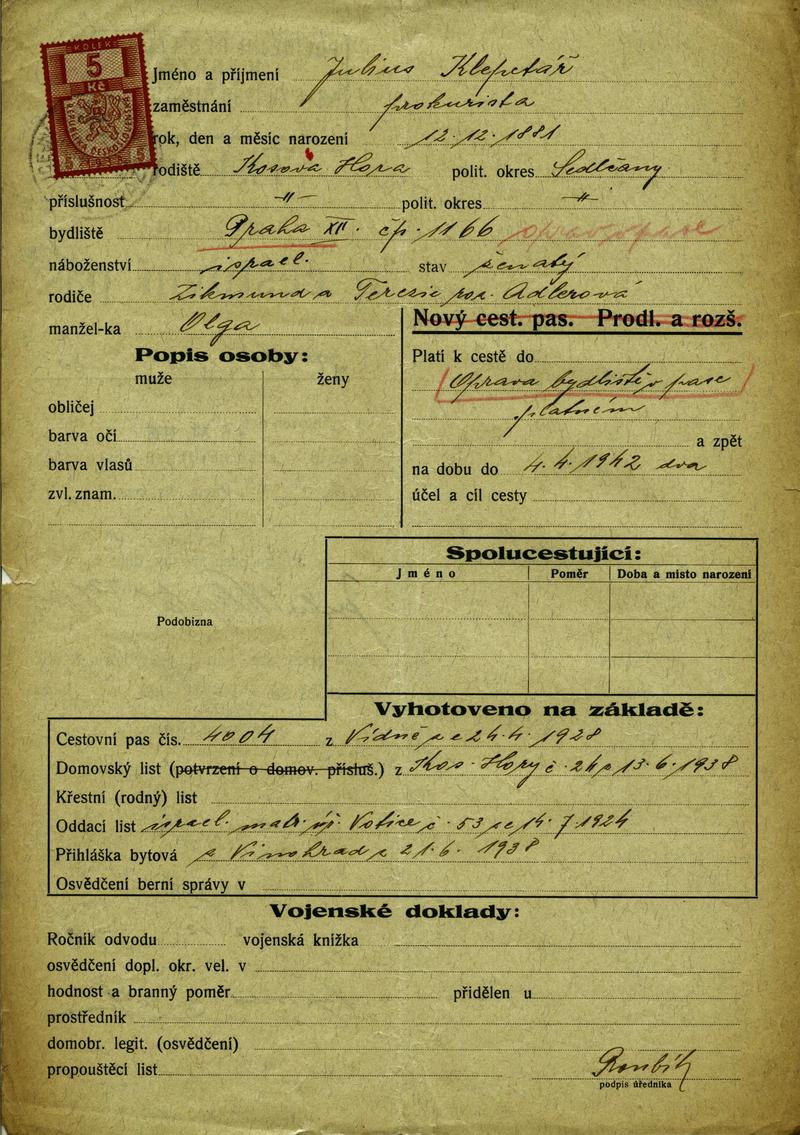 KOLEK
5
Kč
Jméno a příjmení Julius Klepetář
zaměstnání prokurista
rok, den a měsíc narození 12. 12. 1881
rodiště Kosova Hora polit. okres Sedlčany
příslušnost -"- polit. okres -"-
bydliště Praha XII. čp. 1166
náboženství israel. stav ženatý
rodiče Zikmund a Terezie roz. Adlerová
manžel-ka Olga
Nový cest. pas. Prodl. a rozš.
Popis osoby:
muže ženy
obličej
barva očí
barva vlasů
zvl. znam.
Platí k cestě do
Oprava bydliště v pase
platném
a zpět
na dobu do 4. 4. 1942
účel a cíl cesty
Podobizna
Spolucestující:
Jméno Poměr Doba a místo narození
Vyhotoveno na základě:
Cestovní pas čís. 4004 z Vídně 24. 4. 1928
Domovský list (potvrzení o domov. přísluš.) z Kos. Hory č. 13. 6. 1938
Křestní (rodný) list
Oddací list israel. Votice č. 53 1924
Přihláška bytová z Vinohrad 21. 6. 1938
Osvědčení berní správy v
Vojenské doklady:
Ročník odvodu vojenská knížka
osvědčení dopl. okr. vel. v
hodnost a branný poměr přidělen u
prostředník
domobr. legit. (osvědčení)
propouštěcí list
podpis úředníka